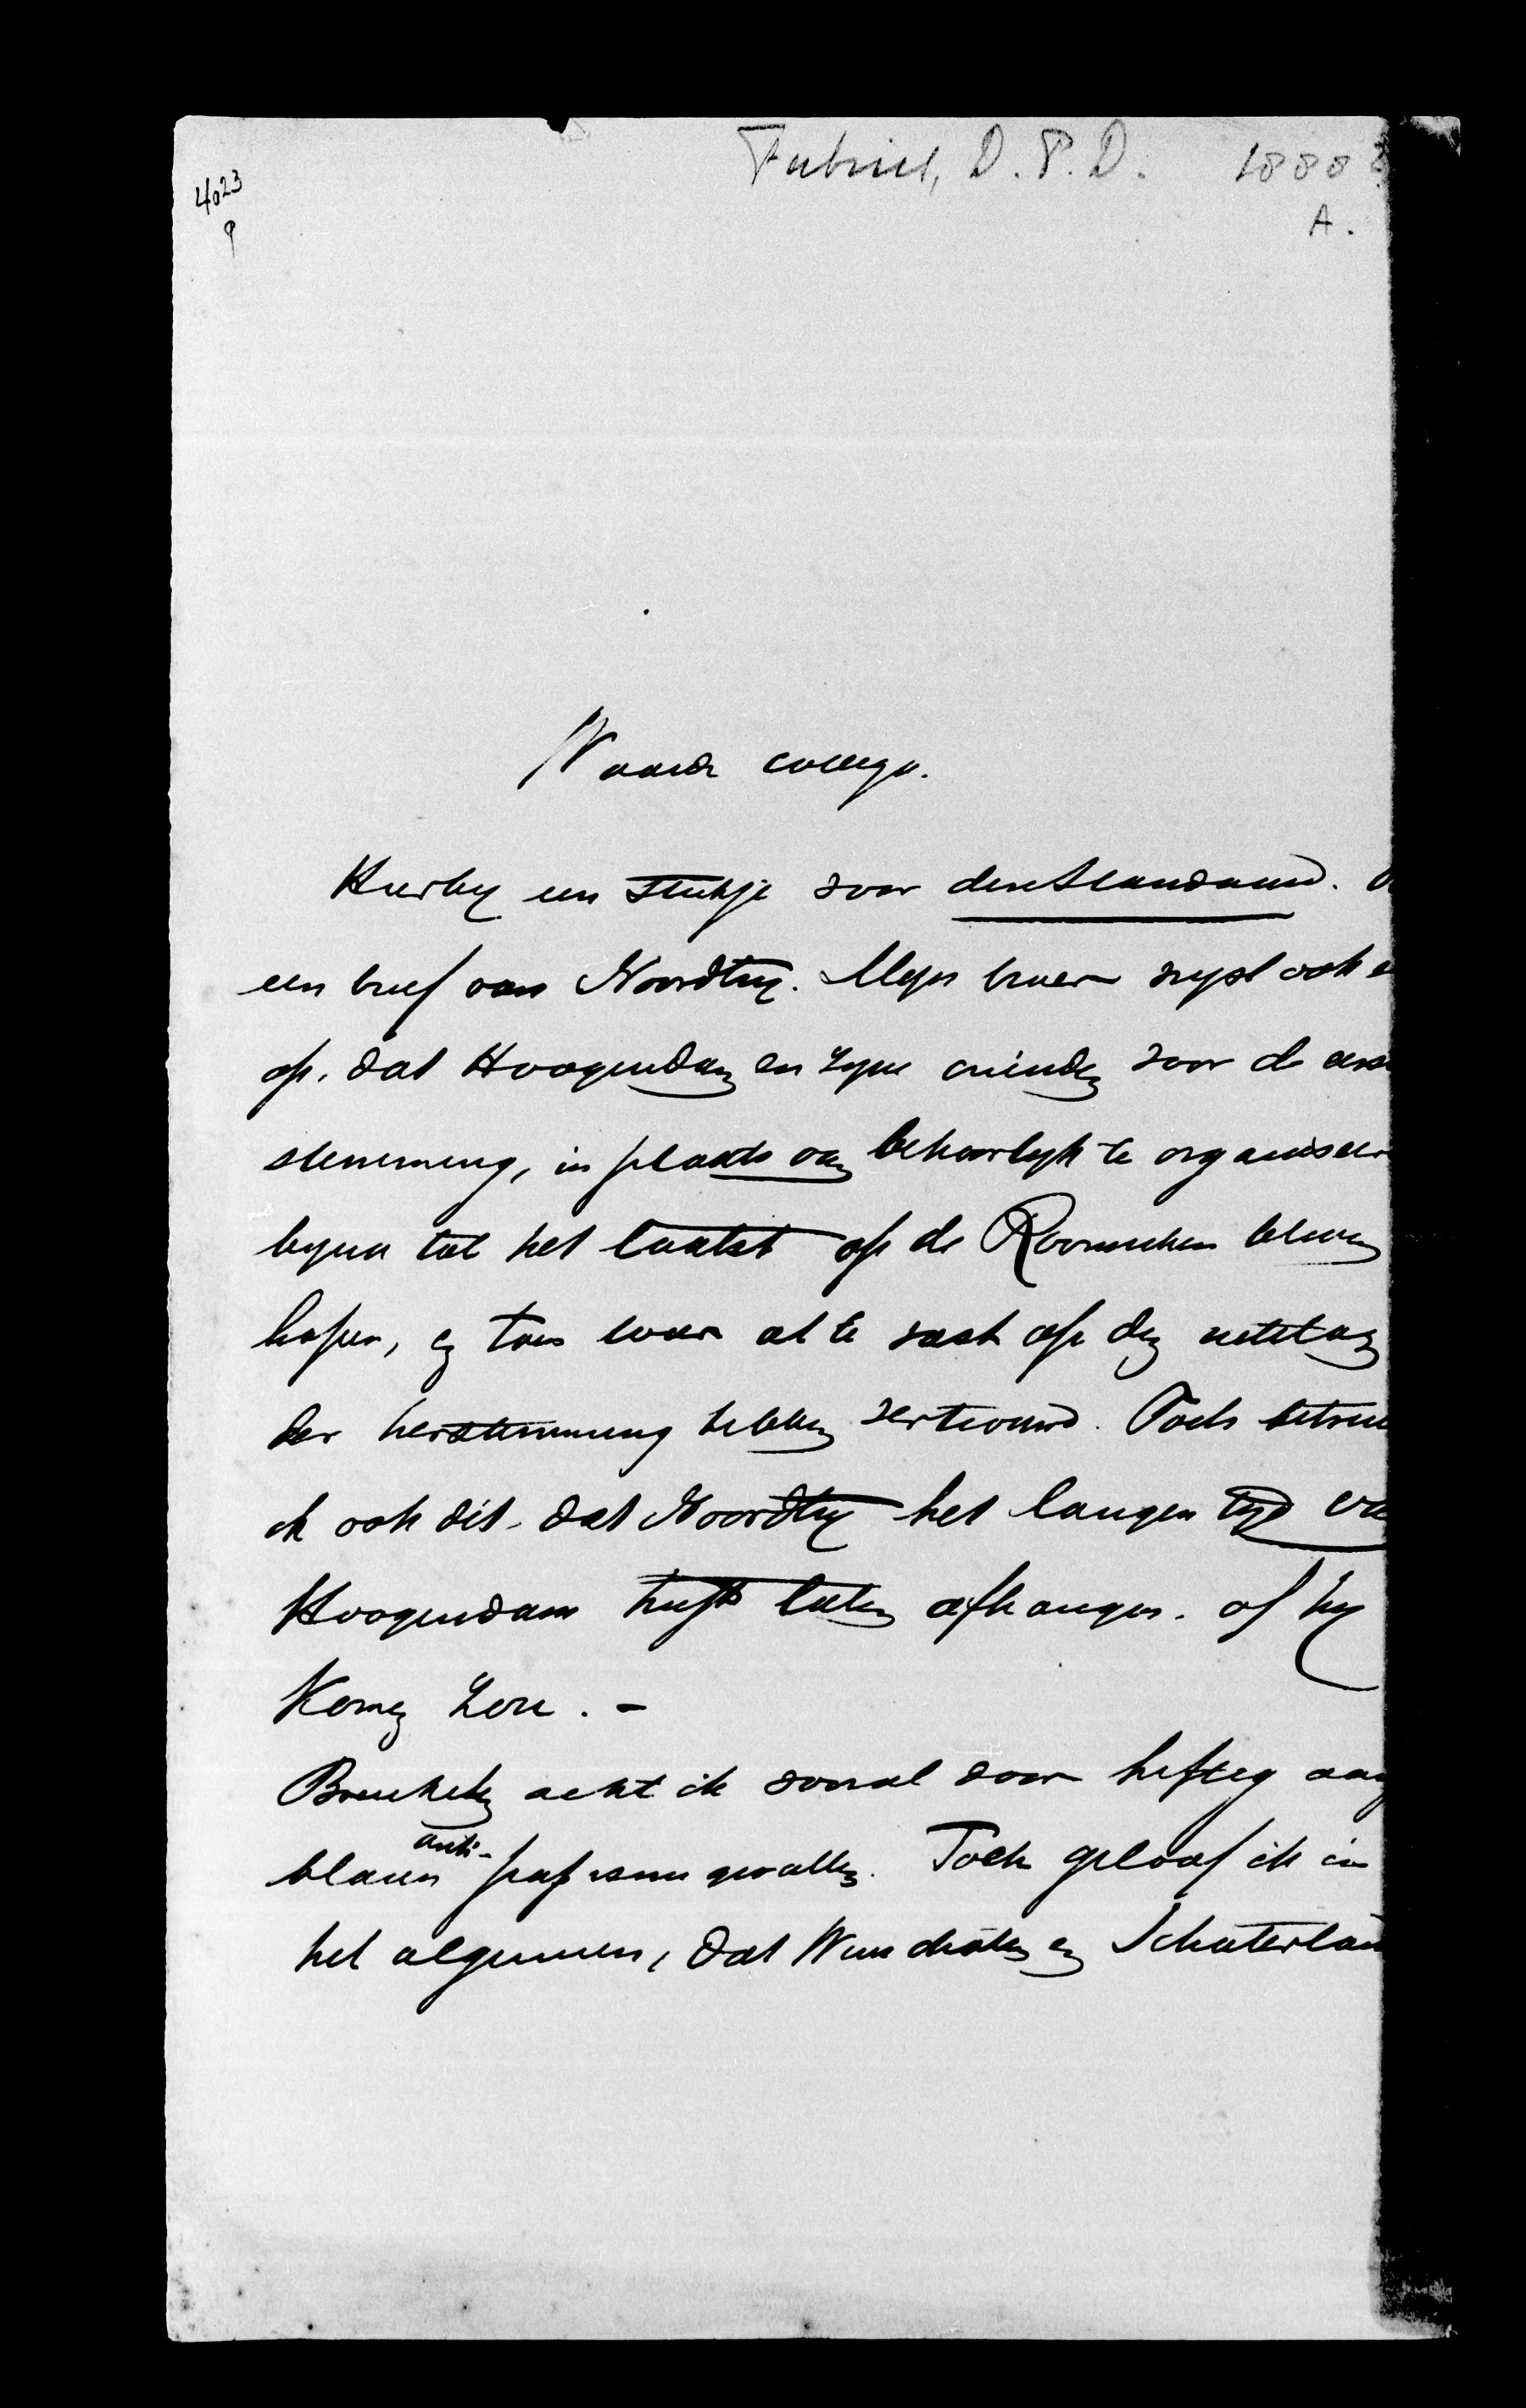 4023
Fabius, D. P. D. 1888
A.
Waarde collega.
Hierby een stukje voor den Standaard.
een brief van Noordtzy. Myn broer wyst ook
op, dat Hoogendam en zyne vrienden voor de
stemming, in plaats van behoorlyk te organiseer
byna tot het laatst op de Roomschen bleven
hopen, en toen weer al te vast op den uitslag
der herstemming hebben vertrouwd. Toch betreur
ik ook dit, dat Noordtzy het langen tyd va
Hoogendam heeft laten afhangen, of hy
komen zou. –
acht ik vooral door heftig
blauw anti- papisme gevallen. Toch geloof ik in
het algemeen, dat Wumdröter en Schoterlan